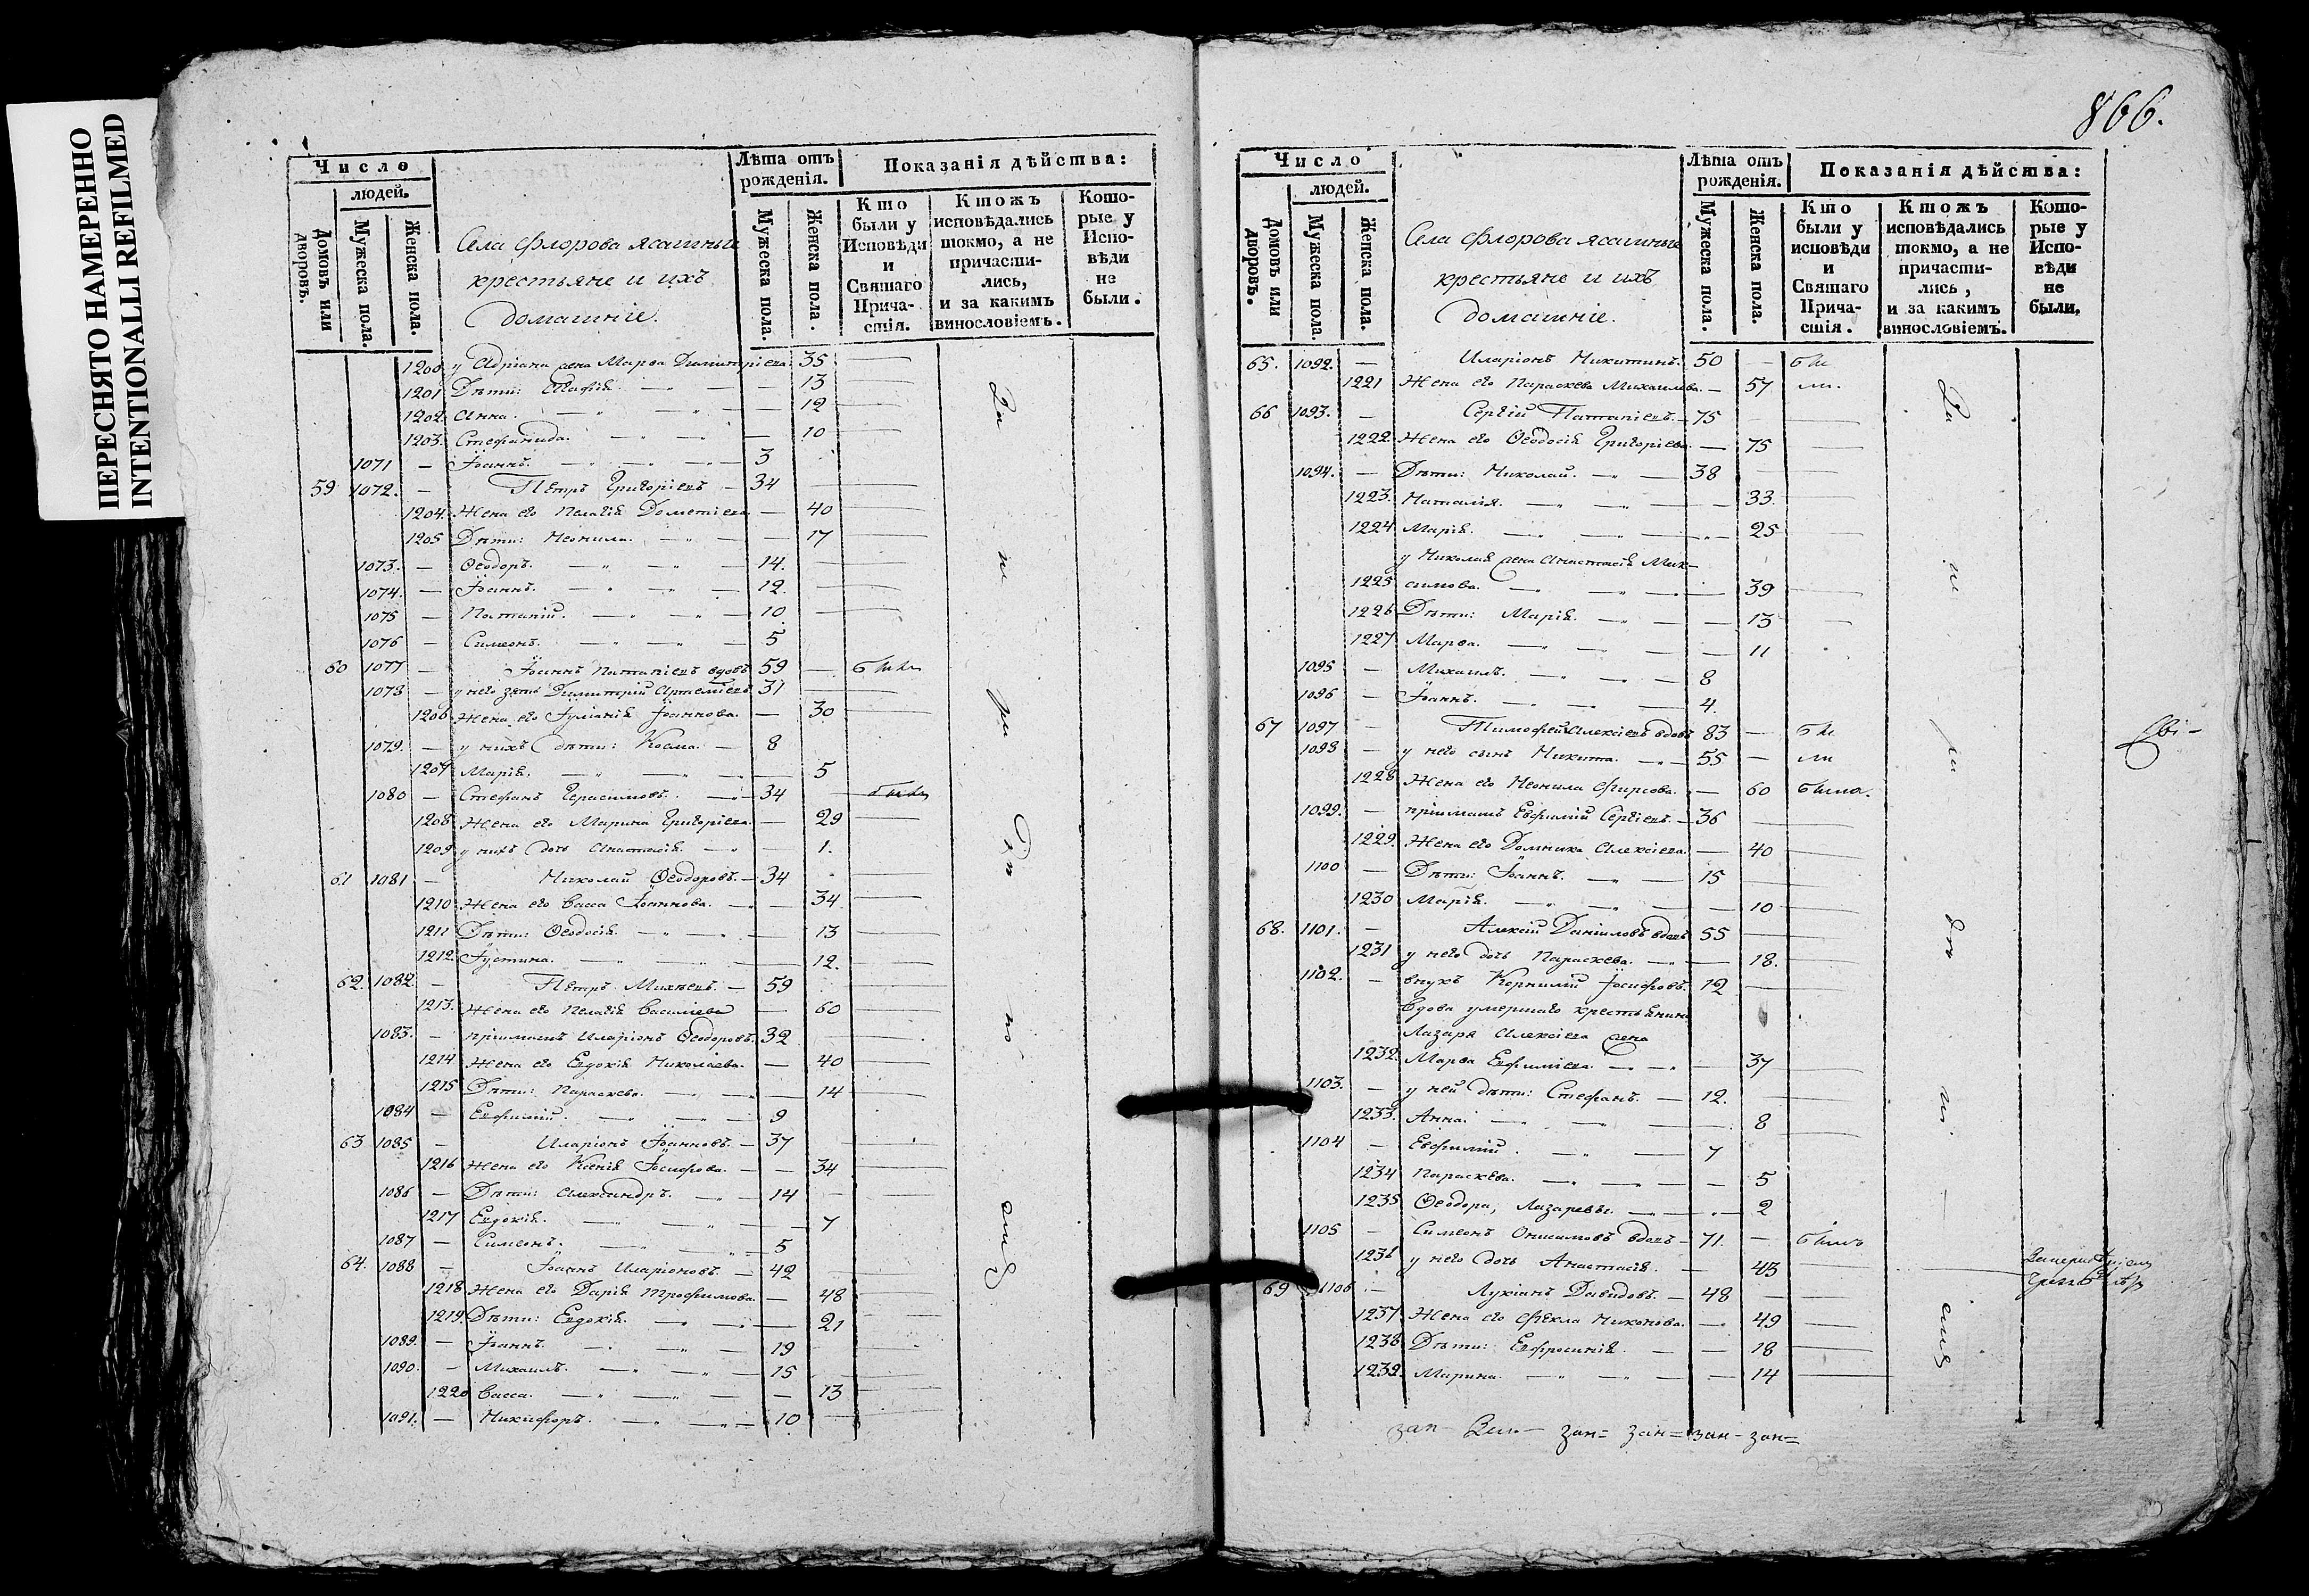 ПЕРЕСНЯТО НАМЕРЕННО
INTENTIONALLI REFILMED
Число
людей.
Домовъ или дворовъ.
Мужеска пола.
Женска пола.
Села Флорова ясашныя
крестьяне и ихъ
домашніе.
Лѣта отъ рожденія.
Мужеска пола.
Женска пола.
Показанія дѣйства:
Кто были у Исповѣди и Святаго Причастія.
Ктожъ исповѣдались токмо, а не причастились, и за какимъ винословіемъ.
Которые у Исповѣди не были.
1200 у Адріана жена Марѳа Димитріева 35
1201 Дѣти: 13
1202 Анна. 12
1203 Стефанида. 10
1071 — Іоаннъ. 3
59 1072. — Петръ Григоріевъ — 34
1204. Жена его Пелагія Дометіева — 40
1205 Дѣти: Неонила. — 17
1073. — Ѳеодоръ. 14.
1074. — Іоаннъ. 12.
1075 — Потапій. 10.
1076 — Симеонъ. 5
60 1077 — Іоаннъ Потапіевъ вдовъ 59 —
1078 — у него зять Димитрій Артеміевъ 31
1206 Жена его Іуліанія Іоаннова. — 30
1079. — у нихъ дѣти: Косма. — 8
1207 Марія. 5
1080 — Стефанъ Герасимовъ. 34
1208 Жена его Марина Григоріева. — 29
1209 у нихъ дочь Анастасія. 1.
61 1081 — Николай Ѳеодоровъ. — 34
1210 Жена его Васса Іоаннова. — 34
1211 Дѣти: Ѳеодосія. 13
1212. Іустина. 12.
62. 1082. — Петръ Михѣевъ. — 59
1213. Жена его Пелагія Василіева — 60
1083. — пріимышъ Иларіонъ Ѳеодоровъ. 32
1214 Жена его Евдокія Николаева. — 40
1215 Дѣти: Параскева. 14
1084 — Евфимій. 9
63 1085 — Иларіонъ Іоанновъ. — 37
1216 Жена его Ксенія Іосифова. — 34
1086 — Дѣти: Александръ. 14
1217 Евдокія. 7
1087 — Симеонъ. 5
64. 1088 — Іоаннъ Иларіоновъ. — 42
1218 Жена его Дарія Трофимова. — 48
1219. Дѣти: Евдокія. 21
1089. — Іоаннъ. 19
1090. — Михаилъ. 15
1220 Васса. 13
1091. — Никифоръ. 10
866.
Число
людей.
Домовъ или дворовъ.
Мужеска пола.
Женска пола.
Села Флорова ясашныя
крестьяне и ихъ
домашніе.
Лѣта отъ рожденія.
Мужеска пола.
Женска пола.
Показанія дѣйства:
Кто были у исповѣди и Святаго Причастія.
Ктожъ исповѣдались токмо, а не причастились, и за какимъ винословіемъ.
Которые у Исповѣди не были.
65. 1092. — Иларіонъ Никитинъ. 50 —
1221 Жена его Параскева Михаилова. — 57
66 1093. — Сергій Потапіевъ. 75
1222 Жена его Ѳеодосія Григоріева — 75
1094. — Дѣти: Николай. 38
1223. Наталія. 33.
1224 Марія. 25
у Николая жена Анастасія Мак-
1225 симова. 39
1226 Дѣти: Марія. 13
1227 Марѳа. 11
1095 — Михаилъ. 8
1096 — Іоаннъ. 4.
67 1097 — Тимофей Алексіевъ вдовъ 83 —
1098 — у него сынъ Никита. 55 —
1228 Жена его Неонила Фирсова. — 60 была.
1099. — пріимышъ Евфимій Сергіевъ. — 36
1229. Жена его Домника Алексіева. — 40
1100 — Дѣти: Іоаннъ. 15
1230 Марія. 10
68. 1101. — Алексій Даніиловъ вдовъ 55
1231 у него дочь Параскева. 18.
1102. — внукъ Корнилій Іосифовъ. 12
Вдова умершаго крестьянина
Лазаря Алексіева жена
1232. Марѳа Евфиміева. 37
1103. — у ней дѣти: Стефанъ. — 12.
1233. Анна. 8
1104 — Евфимій. 7
1234 Параскева. 5
1235 Ѳеодора, Лазаревы. 2
1105 — Симеонъ Онисимовъ вдовъ — 71. — былъ
1236 у него дочь Анастасія. 43
69 1106 — Лукіанъ Давидовъ. — 48
1237 Жена его Ѳекла Никонова. 49
1238 Дѣти: Евфросинія. 18
1239. Марина. 14